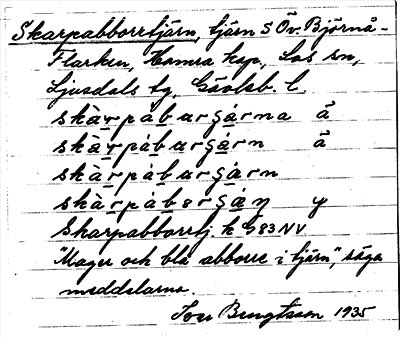 Skarpabborrtjärn, tjärn S Öv. Björnå-
Flarken, Hamra ksp, Los sn,
Ljusdals tg, Gävleb. l.
skàrpábʉrʂárna ä̊
skàrpábʉrʂárn ä̊
skàrpábʉrʂárn
skàrpábɐrʂáŋ y
Skarpabborrtj. k G 83 NV
"Mager och blå abborre i tjärn", säga
meddelarna.
Tore Bengtsson 1935